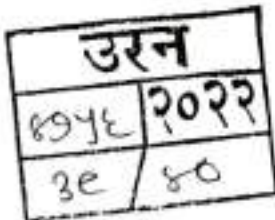 उरन
४७५६ २०२२
३९/४०